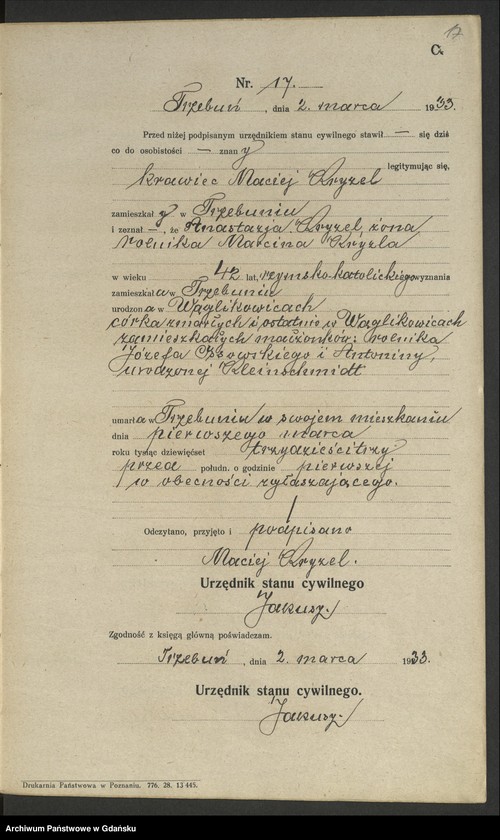 17
C.
Nr. 17.
Trzebuń, dnia 2. marca 1933.
Przed niżej podpisanym urzędnikiem stanu cywilnego stawił — się dziś
co do osobistości — znany
legitymując się,
krawiec Maciej Kryzel
zamieszkały w Trzebuniu
i zeznał —, że Anastazja Kryzel, żona
rolnika Marcina Kryzla
w wieku 42 lat, rzymsko-katolickiego wyznania
zamieszkała w Trzebuniu
urodzona w Wąglikowicach
córka zmarłych i ostatnio w Wąglikowicach
zamieszkałych małżonków: rolnika
Józefa i Antoniny,
urodzonej Kleinschmidt
umarła w Trzebuniu w swojem mieszkaniu
dnia pierwszego marca
roku tysiąc dziewięćset trzydzieści trzy
przed połudn. o godzinie pierwszej
w obecności zgłaszającego.
Odczytano, przyjęto i podpisano
Maciej Kryzel.
Urzędnik stanu cywilnego
Jakusz.
Zgodność z księgą główną poświadczam.
Trzebuń, dnia 2. marca 1933.
Urzędnik stanu cywilnego.
Jakusz.
Drukarnia Państwowa w Poznaniu. 776. 28. 13 445.
Archiwum Państwowe w Gdańsku